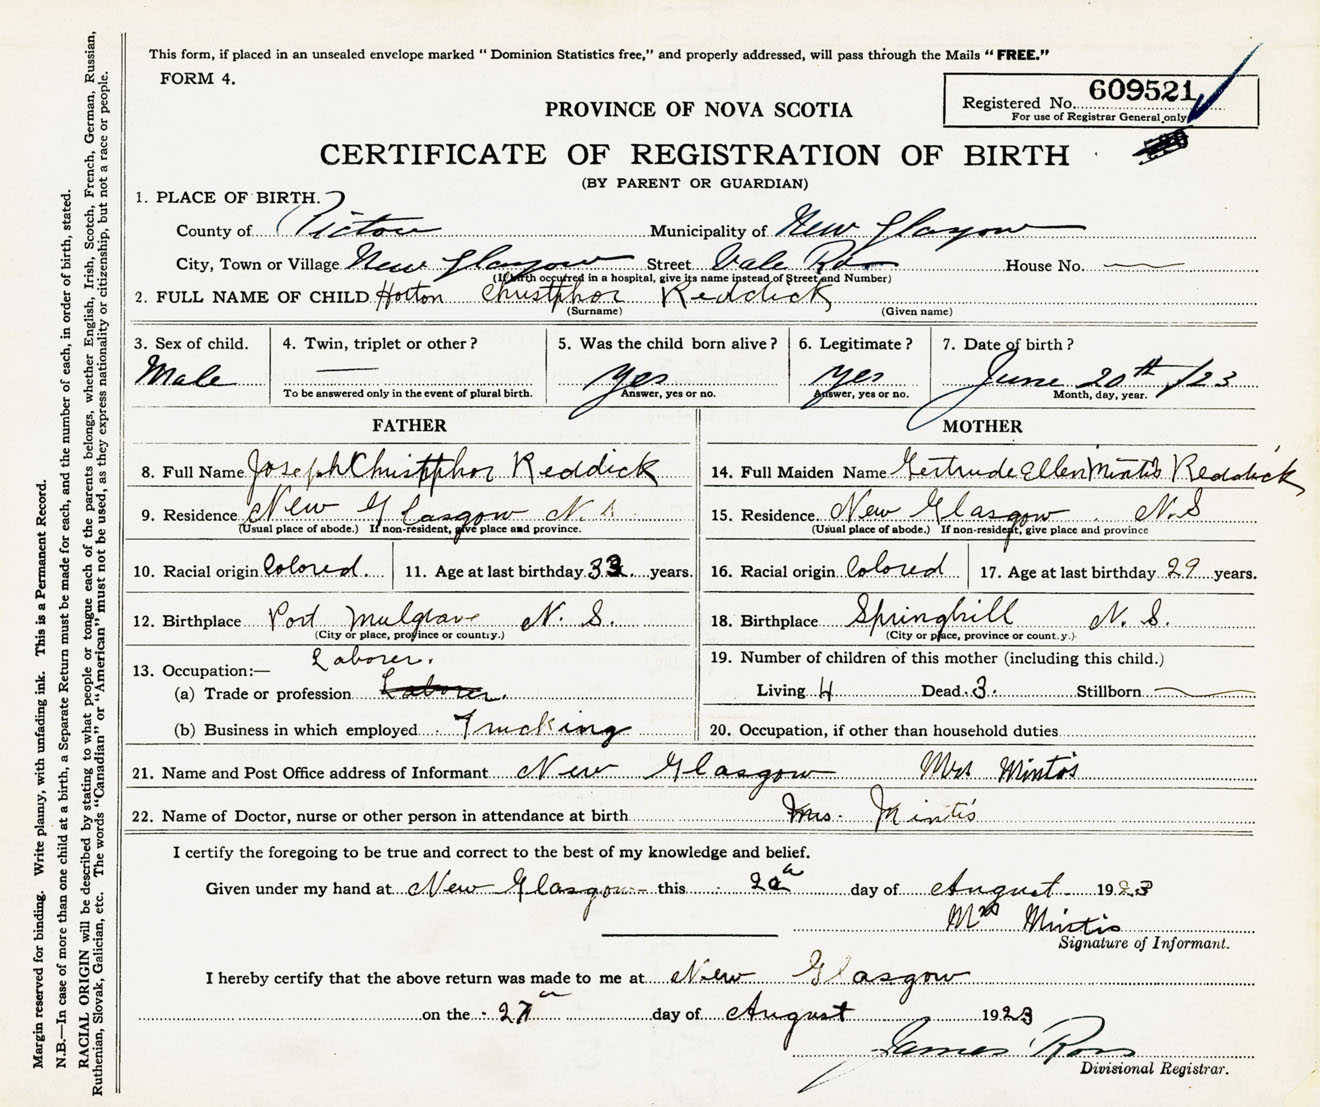 This form, if placed in an unsealed envelope marked " Dominion Statistics free," and properly addressed, will pass through the Mails " FREE."
FORM 4.
Registered No. 609521
For use of Registrar General only
PROVINCE OF NOVA SCOTIA
CERTIFICATE OF REGISTRATION OF BIRTH
(BY PARENT OR GUARDIAN)
1. PLACE OF BIRTH.
County of Pictou Municipality of New Glasgow
City, Town or Village New Glasgow Street Vale Rd House No. —
(If birth occurred in a hospital, give its name instead of Street and Number)
2. FULL NAME OF CHILD Horton Christphor Reddick
(Surname) (Given name)
3. Sex of child. 4. Twin, triplet or other ? 5. Was the child born alive ? 6. Legitimate ? 7. Date of birth ?
Male — yes yes June 20th /23
To be answered only in the event of plural birth. Answer, yes or no. Answer, yes or no. Month, day, year.
FATHER MOTHER
8. Full Name Joseph Christphor Reddick 14. Full Maiden Name Gertrude Ellen Mintis Reddick
9. Residence New Glasgow N. S 15. Residence New Glasgow N.S
(Usual place of abode.) If non-resident, give place and province. (Usual place of abode.) If non-resident, give place and province
10. Racial origin Colored. 11. Age at last birthday 33 years. 16. Racial origin Colored 17. Age at last birthday 29 years.
12. Birthplace Port Mulgrave N. S. 18. Birthplace Springhill N. S.
(City or place, province or country.) (City or place, province or country.)
13. Occupation:— Laborer. 19. Number of children of this mother (including this child.)
(a) Trade or profession Laborer. Living 4 Dead 3. Stillborn —
(b) Business in which employed Trucking 20. Occupation, if other than household duties
21. Name and Post Office address of Informant New Glasgow Mrs Mintis
22. Name of Doctor, nurse or other person in attendance at birth Mrs. Mintis
I certify the foregoing to be true and correct to the best of my knowledge and belief.
Given under my hand at New Glasgow this day of August 1923
Mrs Mintis
Signature of Informant.
I hereby certify that the above return was made to me at New Glasgow
on the 27 day of August 1923
James Ross
Divisional Registrar.
Margin reserved for binding. Write plainly, with unfading ink. This is a Permanent Record.
N.B.—In case of more than one child at a birth, a Separate Return must be made for each, and the number of each, in order of birth, stated.
RACIAL ORIGIN will be described by stating to what people or tongue each of the parents belongs, whether English, Irish, Scotch, French, German, Russian,
Ruthenian, Slovak, Galician, etc. The words "Canadian" or "American" must not be used, as they express nationality or citizenship, but not a race or people.